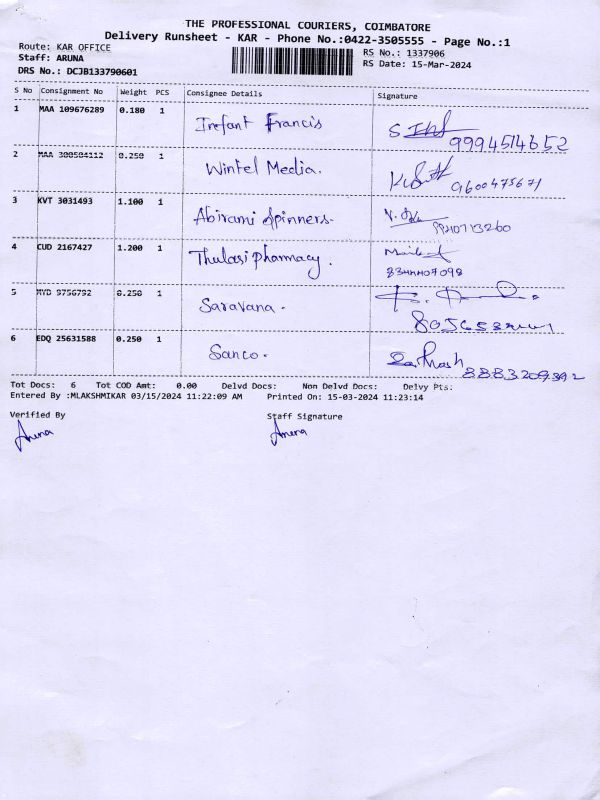 THE PROFESSIONAL COURIERS, COIMBATORE
Delivery Runsheet - KAR - Phone No.:0422-3505555 - Page No.:1
Route: KAR OFFICE
RS No.: 1337906
Staff: ARUNA
RS Date: 15-Mar-2024
DRS No.: DCJB133790601
S No Consignment No Weight PCS Consignee Details Signature
1 MAA 109676289 0.180 1 Irefant Francis
9994514652
2 MAA 300504112 0.250 1 Wintel Media.
9600475671
3 KVT 3031493 1.100 1 Abirami Spinners.
4 CUD 2167427 1.200 1 Thulasi pharmacy.
5 0.250 1 Saravana.
6 EDQ 25631588 0.250 1 Sanco.
8883209392
Tot Docs: 6 Tot COD Amt: 0.00 Delvd Docs: Non Delvd Docs: Delvy Pts:
Entered By :MLAKSHMIKAR 03/15/2024 11:22:09 AM Printed On: 15-03-2024 11:23:14
Verified By Staff Signature
Aruna Aruna